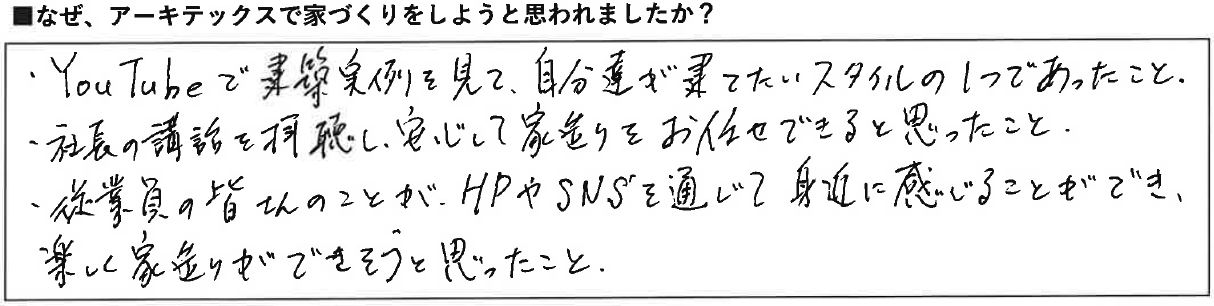 ■なぜ、アーキテックスで家づくりをしようと思われましたか？
・YouTubeで建築実例を見て、自分達が建てたいスタイルの1つであったこと．
・社長の講話を拝聴し、安心して家造りをお任せできると思ったこと．
・従業員の皆さんのことが、HPやSNSを通じて身近に感じることができ、
楽しく家造りができそうと思ったこと．